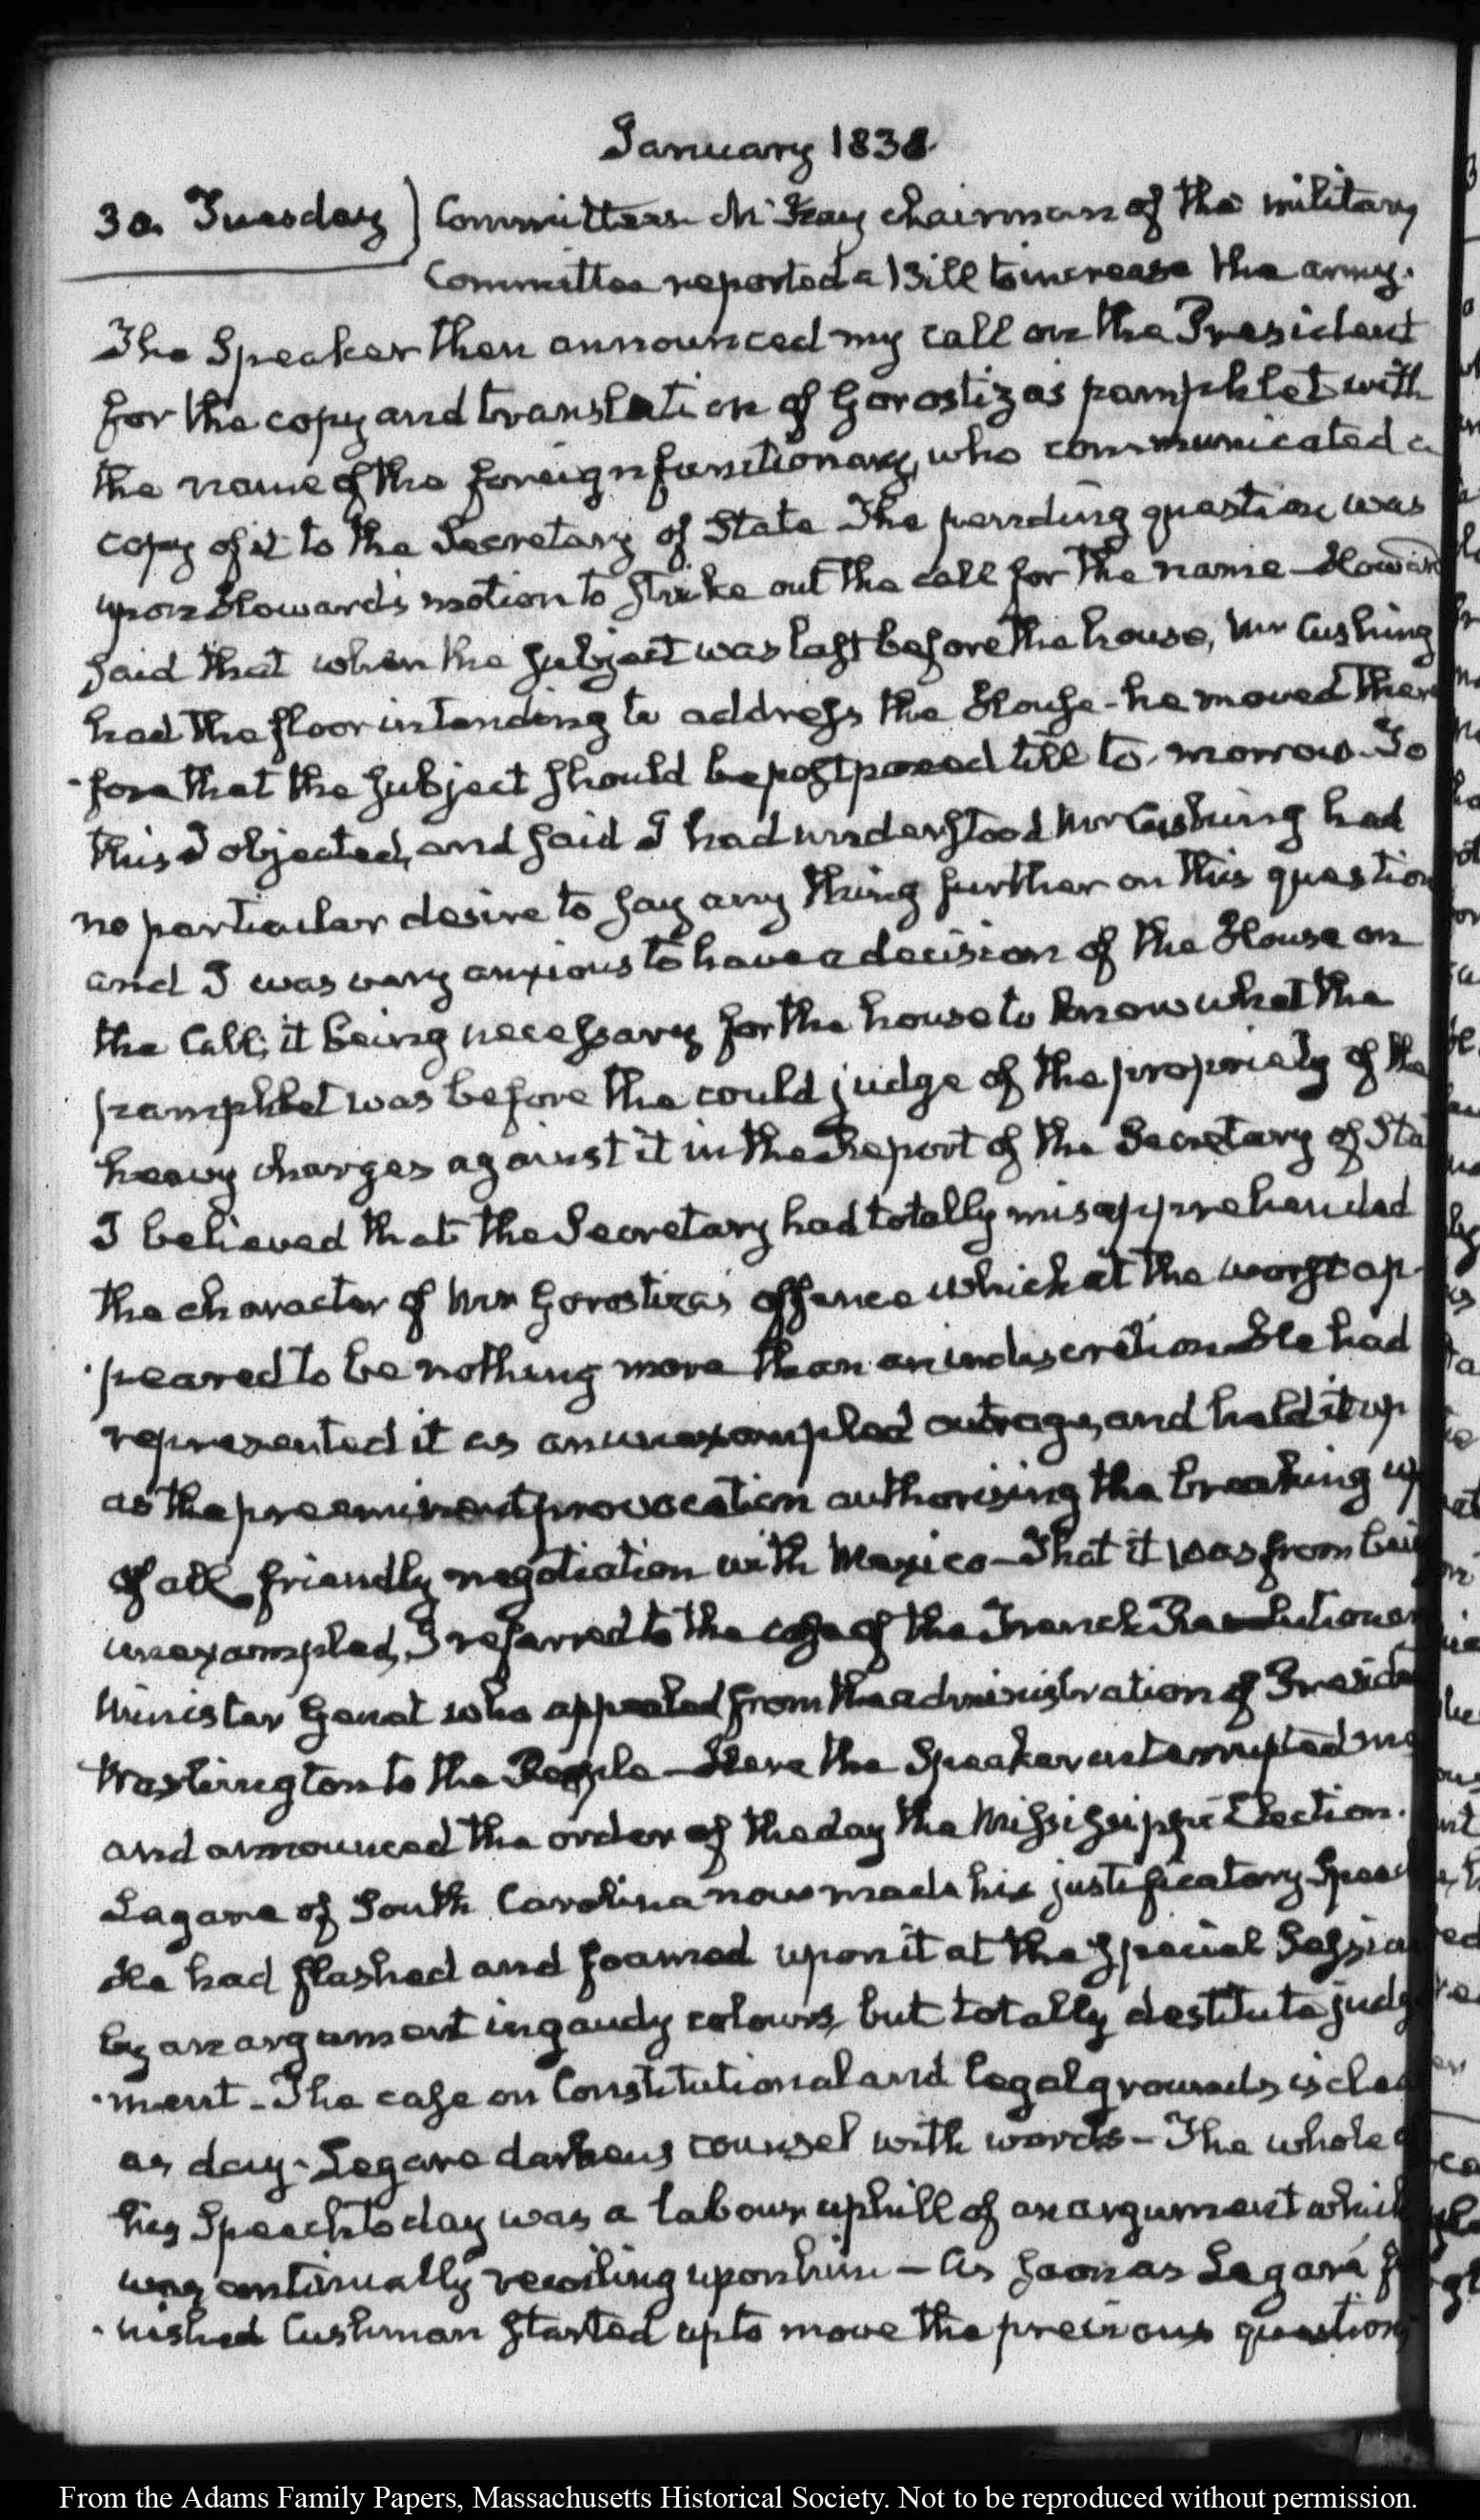 January 1838
30. Tuesday) Committees. McKay chairman of the military
Committee reported a Bill to increase the army.
The Speaker then announced my call on the President
for the copy and translation of Gorostiza's pamphlet with
the name of the foreign functionary, who communicated a
copy of it to the Secretary of State The pending question was
upon Howard's motion to strike out the call for the name—Howard
said that when the subject was last before the house, Mr Cushing
had the floor intending to address the House—he moved there
-fore that the subject should be postponed till to-morrow. To
this I objected, and said I had understood Mr Cushing had
no particular desire to say any thing further on this question
and I was very anxious to have a decision of the House on
the Call; it being necessary for the house to know what the
pamphlet was before the could judge of the propriety of the
heavy charges against it in the Report of the Secretary of Sta
I believed that the Secretary had totally misapprehended
the character of Mr Gorostiza's offence which at the worst ap-
-peared to be nothing more than an indiscretion. He had
represented it as an unexampled outrage, and held it up
as the preeminent provocation authorising the breaking up
of all friendly negotiation with Mexico—That it was from bei
unexampled, I referred to the case of the French Revolutionar
Minister Genet who appealed from the administration of Preside
Washington to the People—Here the Speaker interrupted me
and announced the order of the day the Mississippi Election.
Legare of South Carolina now made his justificatory Speec
He had flashed and foamed upon it at the special Session
by an argument in gaudy colours, but totally destitute judg
-ment—The case on Constitutional and legal grounds is clea
as day. Legare darkens counsel with words—The whole o
his Speech to day was a labour uphill of an argument which
was continually recoiling upon him—As soon as Legaré fi
-nished Cushman started up to move the previous question
From the Adams Family Papers, Massachusetts Historical Society. Not to be reproduced without permission.